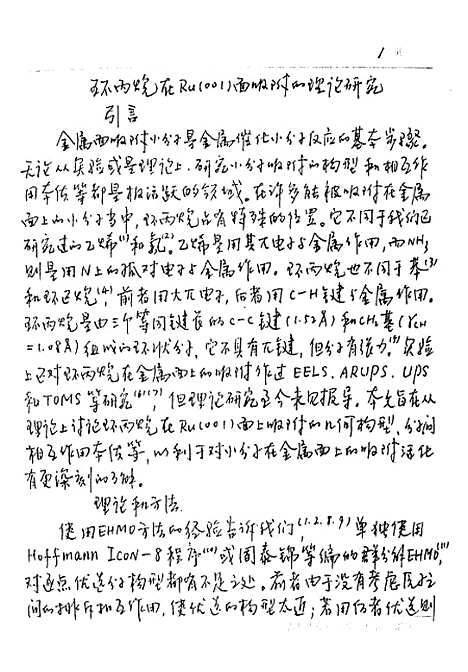 1 页
环丙烷在Ru(001)面吸附的理论研究
引言
金属面吸附小分子是金属催化小分子反应的基本步骤。
无论从实验或是理论上,研究小分子吸附的构型和相互作
用本质等都是极活跃的领域。在许多能被吸附在金属
面上的小分子当中,环丙烷占有特殊的位置。它不同于我们已
研究过的乙烯(1)和氨(2)。乙烯是用其π电子与金属作用,而NH3
则是用N上的孤对电子与金属作用。环丙烷也不同于苯(3)
和环己烷(4),前者用大π电子,后者用C-H键与金属作用。
环丙烷是由三个等同键长的C-C键(1.52Å)和CH2基(γCH
=1.08Å)组成的环状分子,它不具有π键,但分子有张力(5)。实验
上已对环丙烷在金属面上的吸附作过EELS、ARUPS、UPS
和TDMS等研究(6)(7),但理论研究至今未见报导。本文旨在从
理论上讨论环丙烷在Ru(001)面上吸附的几何构型,分子间
相互作用本质等,以利于对小分子在金属面上的吸附活化
有更深刻的了解。
理论和方法
使用EHMO方法的经验告诉我们,(1.2.8.9)单独使用
Hoffmann ICON-8程序(10)或周泰锦等编的群分解EHMO(11),
对逐点优选分子构型都有不足之处。前者由于没有考虑
间的排斥相互作用,使优选的构型太近;若用后者优选则